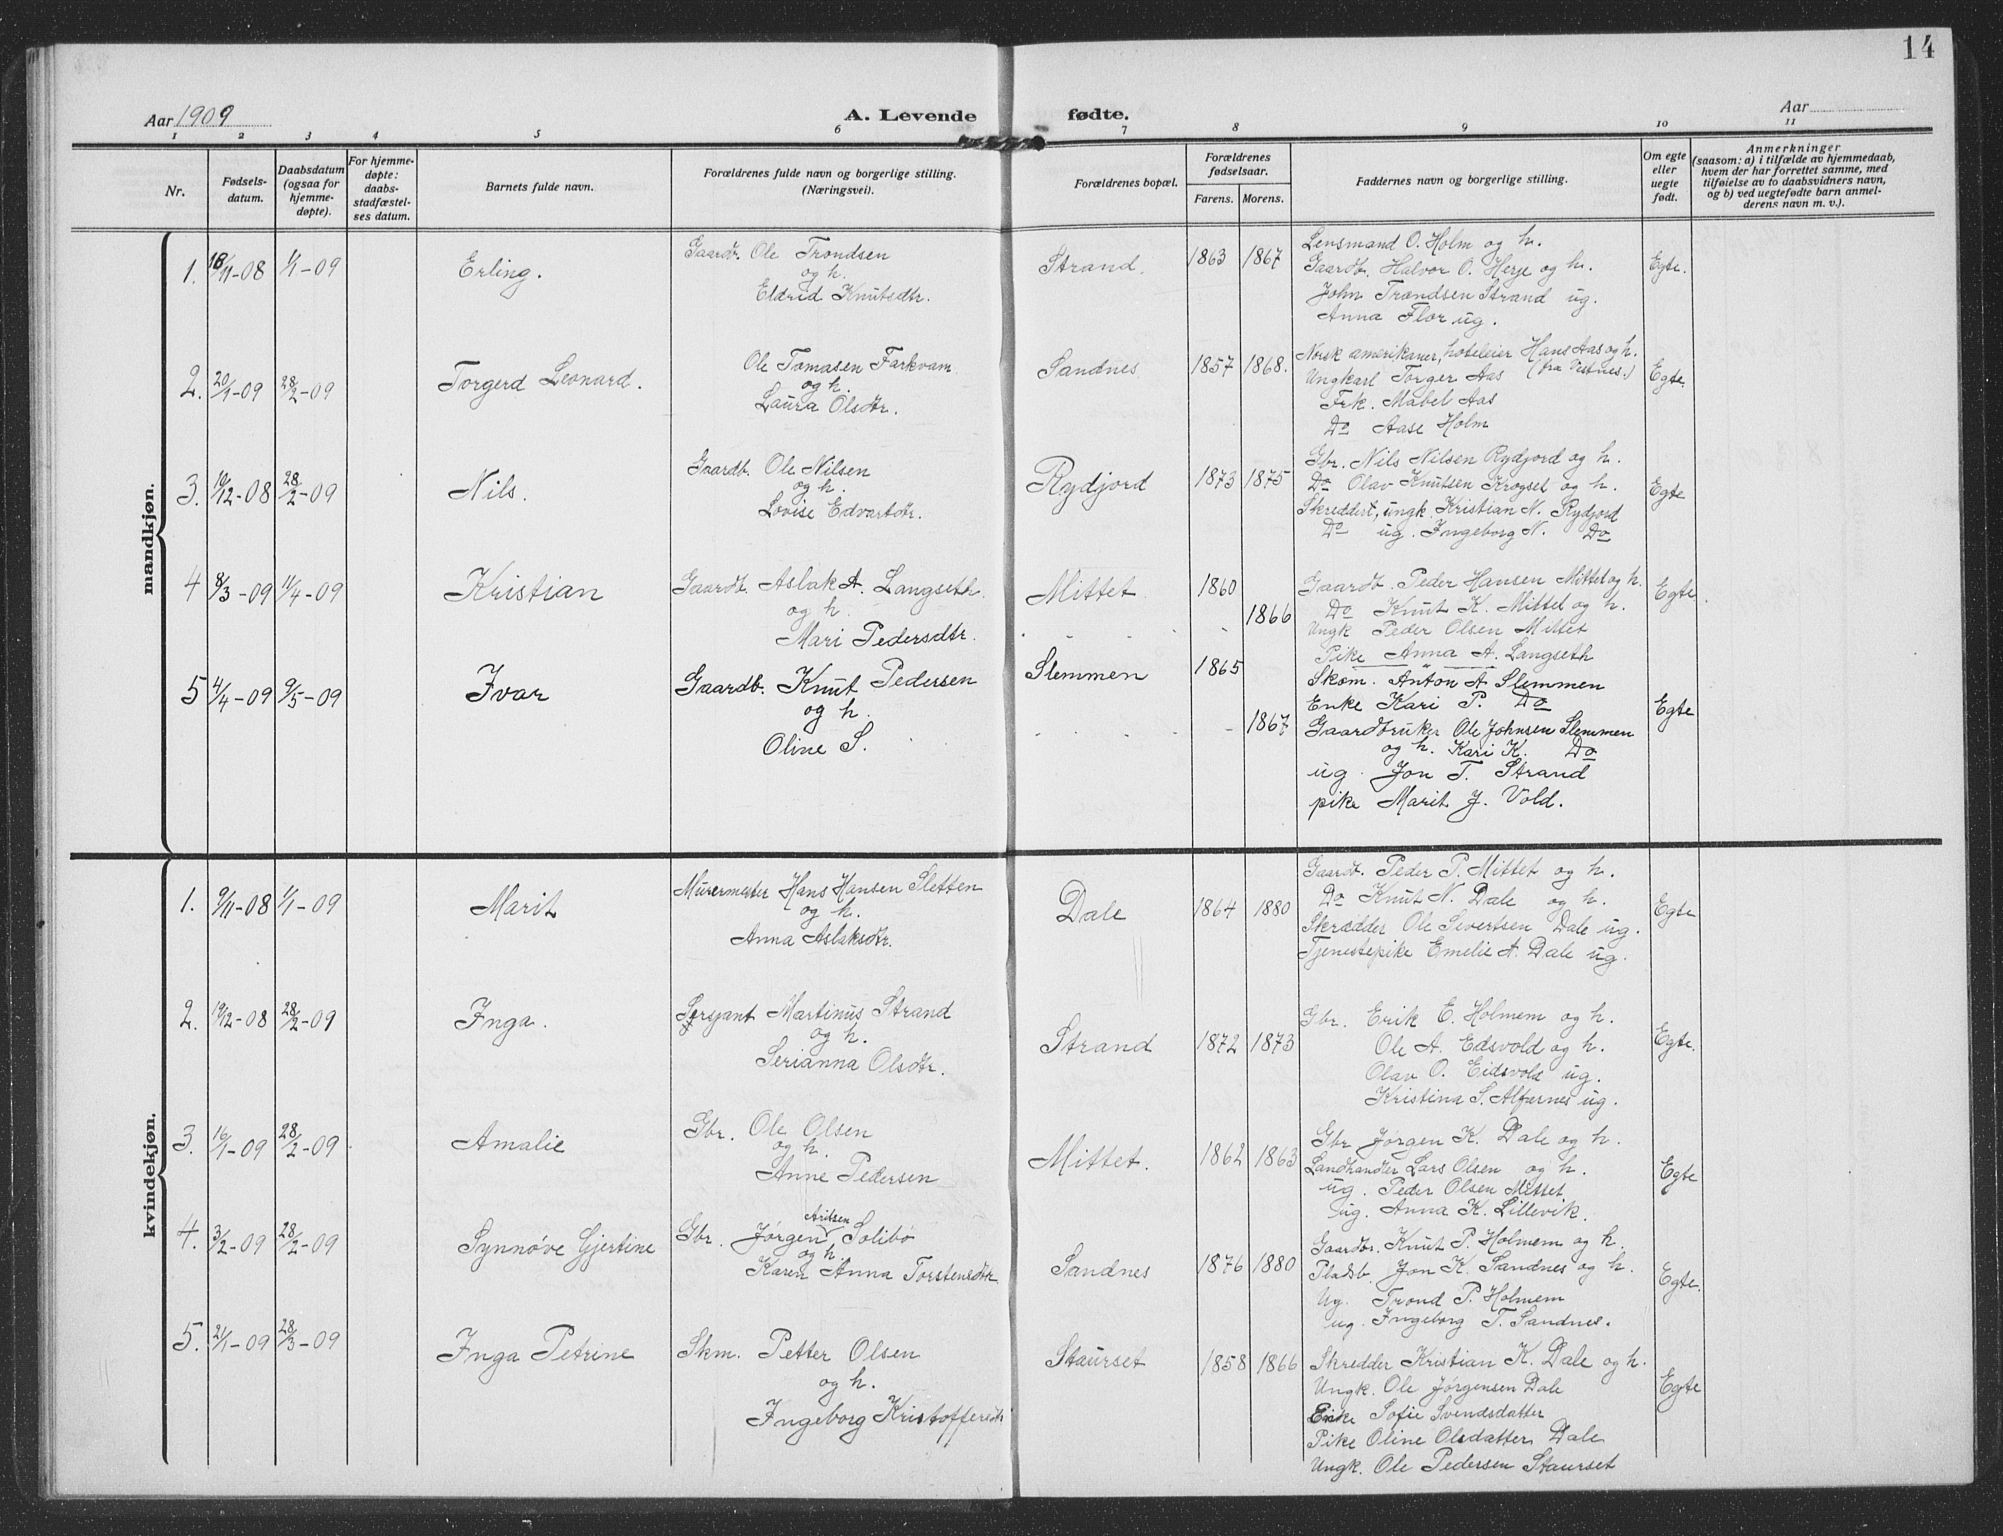 14
Aar 1909
A. Levende
fødte.
Aar
1 2 3 4 5 6 7 8 9 10 11
Nr.
Fødsels-
datum.
Daabsdatum
(ogsaa for
hjemme-
døpte).
For hjemme-
døpte:
daabs-
stadfæstel-
ses datum.
Barnets fulde navn.
Forældrenes fulde navn og borgerlige stilling.
(Næringsvei).
Forældrenes bopæl.
Forældrenes
fødselsaar.
Farens. Morens.
Faddernes navn og borgerlige stilling.
Om egte
eller
uegte
født.
Anmerkninger
(saasom: a) i tilfælde av hjemmedaab,
hvem der har forrettet samme, med
tilføielse av to daabsvidners navn,
og b) ved uegtefødte barn anmel-
derens navn m. v.).
mandkjøn.
1. 18/11-08 1/1-09 Erling.
Gaardbr. Ole Trondsen
og h.
Eldrid Knutsdtr.
Strand. 1863 1867
Lensmand O. Holm og h.
Gaardb. Halvor O. Herje og h.
John Trondsen Strand ug.
Anna Flor ug.
Egte.
2. 20/1-09 28/2-09 Torgerd Leonard.
Ole Tomasen Farkvam
og h.
Laura Olsdtr.
Sandnes 1857 1868.
Norsk amerikaner, hoteleier Hans Aas og h.
(fra Vestnes.)
Ungkarl Torger Aas
Frk. Mabel Aas
Do Aase Holm
Egte.
3. 16/12-08 28/2-09 Nils.
Gaardb. Ole Nilsen
og h.
Lovise Edvartdtr.
Rydjord 1873 1875
Gbr. Nils Nilsen Rydjord og h.
Do Olav Knutsen Krogset og h.
Skreddert, ungk. Kristian N. Rydjord
Do ug. Ingeborg N. Do
Egte
4 8/3-09 11/4-09 Kristian
Gaardb. Aslak A. Langseth
og h.
Mari Pedersdtr.
Mittet 1860 1866
Gaardb. Peder Hansen Mittet og h.
Do Knut K. Mittet og h.
Ungk Peder Olsen Mittet
Pike Anna A. Langseth
Egte.
5 4/4-09 9/5-09 Ivar
Gaardb. Knut Pedersen
og h.
Oline S.
Slemmen 1865 1867
Skom. Anton A Slemmen
Enke Kari P. Do
Gaardbruker Ole Johnsen Slemmen
og h. Kari K. Do
ug. Jon T. Strand
pike Marit J. Vold.
Egte
kvindekjøn.
1. 9/11-08 1/1-09 Marit
Murermester Hans Hansen Sletten
og h.
Anna Aslaksdtr.
Dale 1864 1880
Gaardb. Peder P. Mittet og h.
Do Knut N. Dale og h.
Skrædder Ole Sivertsen Dale ug.
Tjenestepike Emelie A. Dale ug.
Egte
2. 19/12-08 28/2-09 Inga.
Sersjant Martinus Strand
og h.
Serianna Olsdtr.
Strand 1872 1873
Gbr. Erik E. Holmem og h.
Ole A. Edsvold og h.
Olav O. Eidsvold ug.
Kristina S. Alfarnes ug.
Egte.
3. 16/1-09 28/2-09 Amalie
Gbr. Ole Olsen
og h.
Anne Pedersen
Mittet. 1862 1863
Gbr Jørgen K. Dale og h.
Landhandler Lars Olsen og h.
ug. Peder Olsen Mittet
ug. Anna K. Lillevik.
Egte
4. 3/2-09 28/2-09 Synnøve Gjertine
Gbr. Jørgen Aritsen Solibø
og h.
Karen Anna Torstensdtr
Sandnes 1876 1880
Gaardbr. Knut P. Holmem og h.
Pladsb. Jon K. Sandnes og h.
Ug. Trond P. Holmem
ug. Ingeborg T. Sandnes.
Egte.
5. 21/1-09 28/3-09 Inga Petrine
Skm. Petter Olsen
og h.
Ingeborg Kristoffersdtr
Staurset 1858 1866
Skredder Kristian K. Dale og h.
Ungk. Ole Jørgensen Dale
Enke Sofie Svendsdatter
Pike Oline Olsdatter Dale
Ungk. Ole Pedersen Staurset
Egte